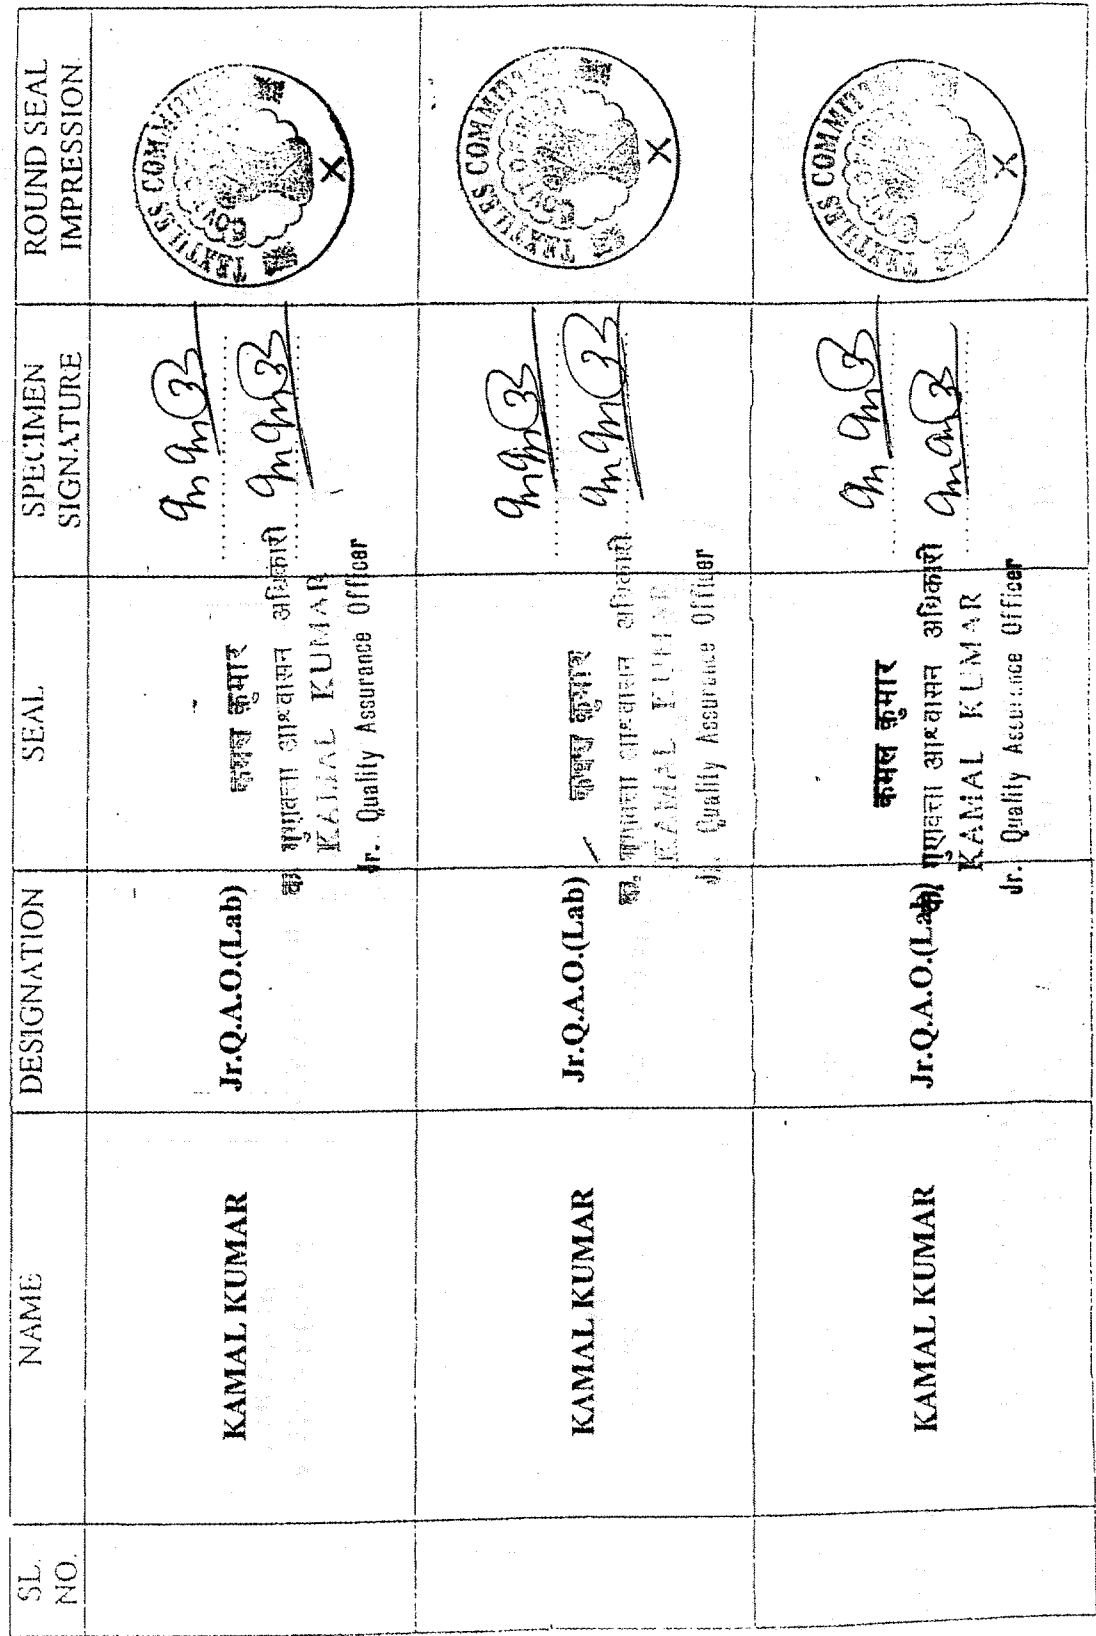 SL. NO.
NAME
DESIGNATION
SEAL
SPECIMEN SIGNATURE
ROUND SEAL IMPRESSION
KAMAL KUMAR
Jr.Q.A.O.(Lab)
कमल कुमार
क. गुणवत्ता आश्वासन अधिकारी
KAMAL KUMAR
Jr. Quality Assurance Officer
TEXTILES COMMITTEE
KAMAL KUMAR
Jr.Q.A.O.(Lab)
कमल कुमार
क. गुणवत्ता आश्वासन अधिकारी
KAMAL KUMAR
Jr. Quality Assurance Officer
TEXTILES COMMITTEE
KAMAL KUMAR
Jr.Q.A.O.(Lab)
कमल कुमार
क. गुणवत्ता आश्वासन अधिकारी
KAMAL KUMAR
Jr. Quality Assurance Officer
TEXTILES COMMITTEE